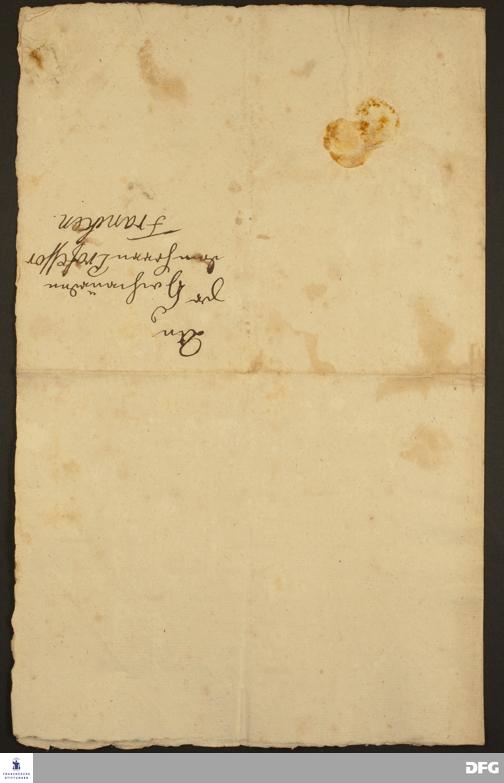 An
Sr Hochwürden
dem Herrn Professor
Francken.
FRANCKESCHE
STIFTUNGEN
DFG